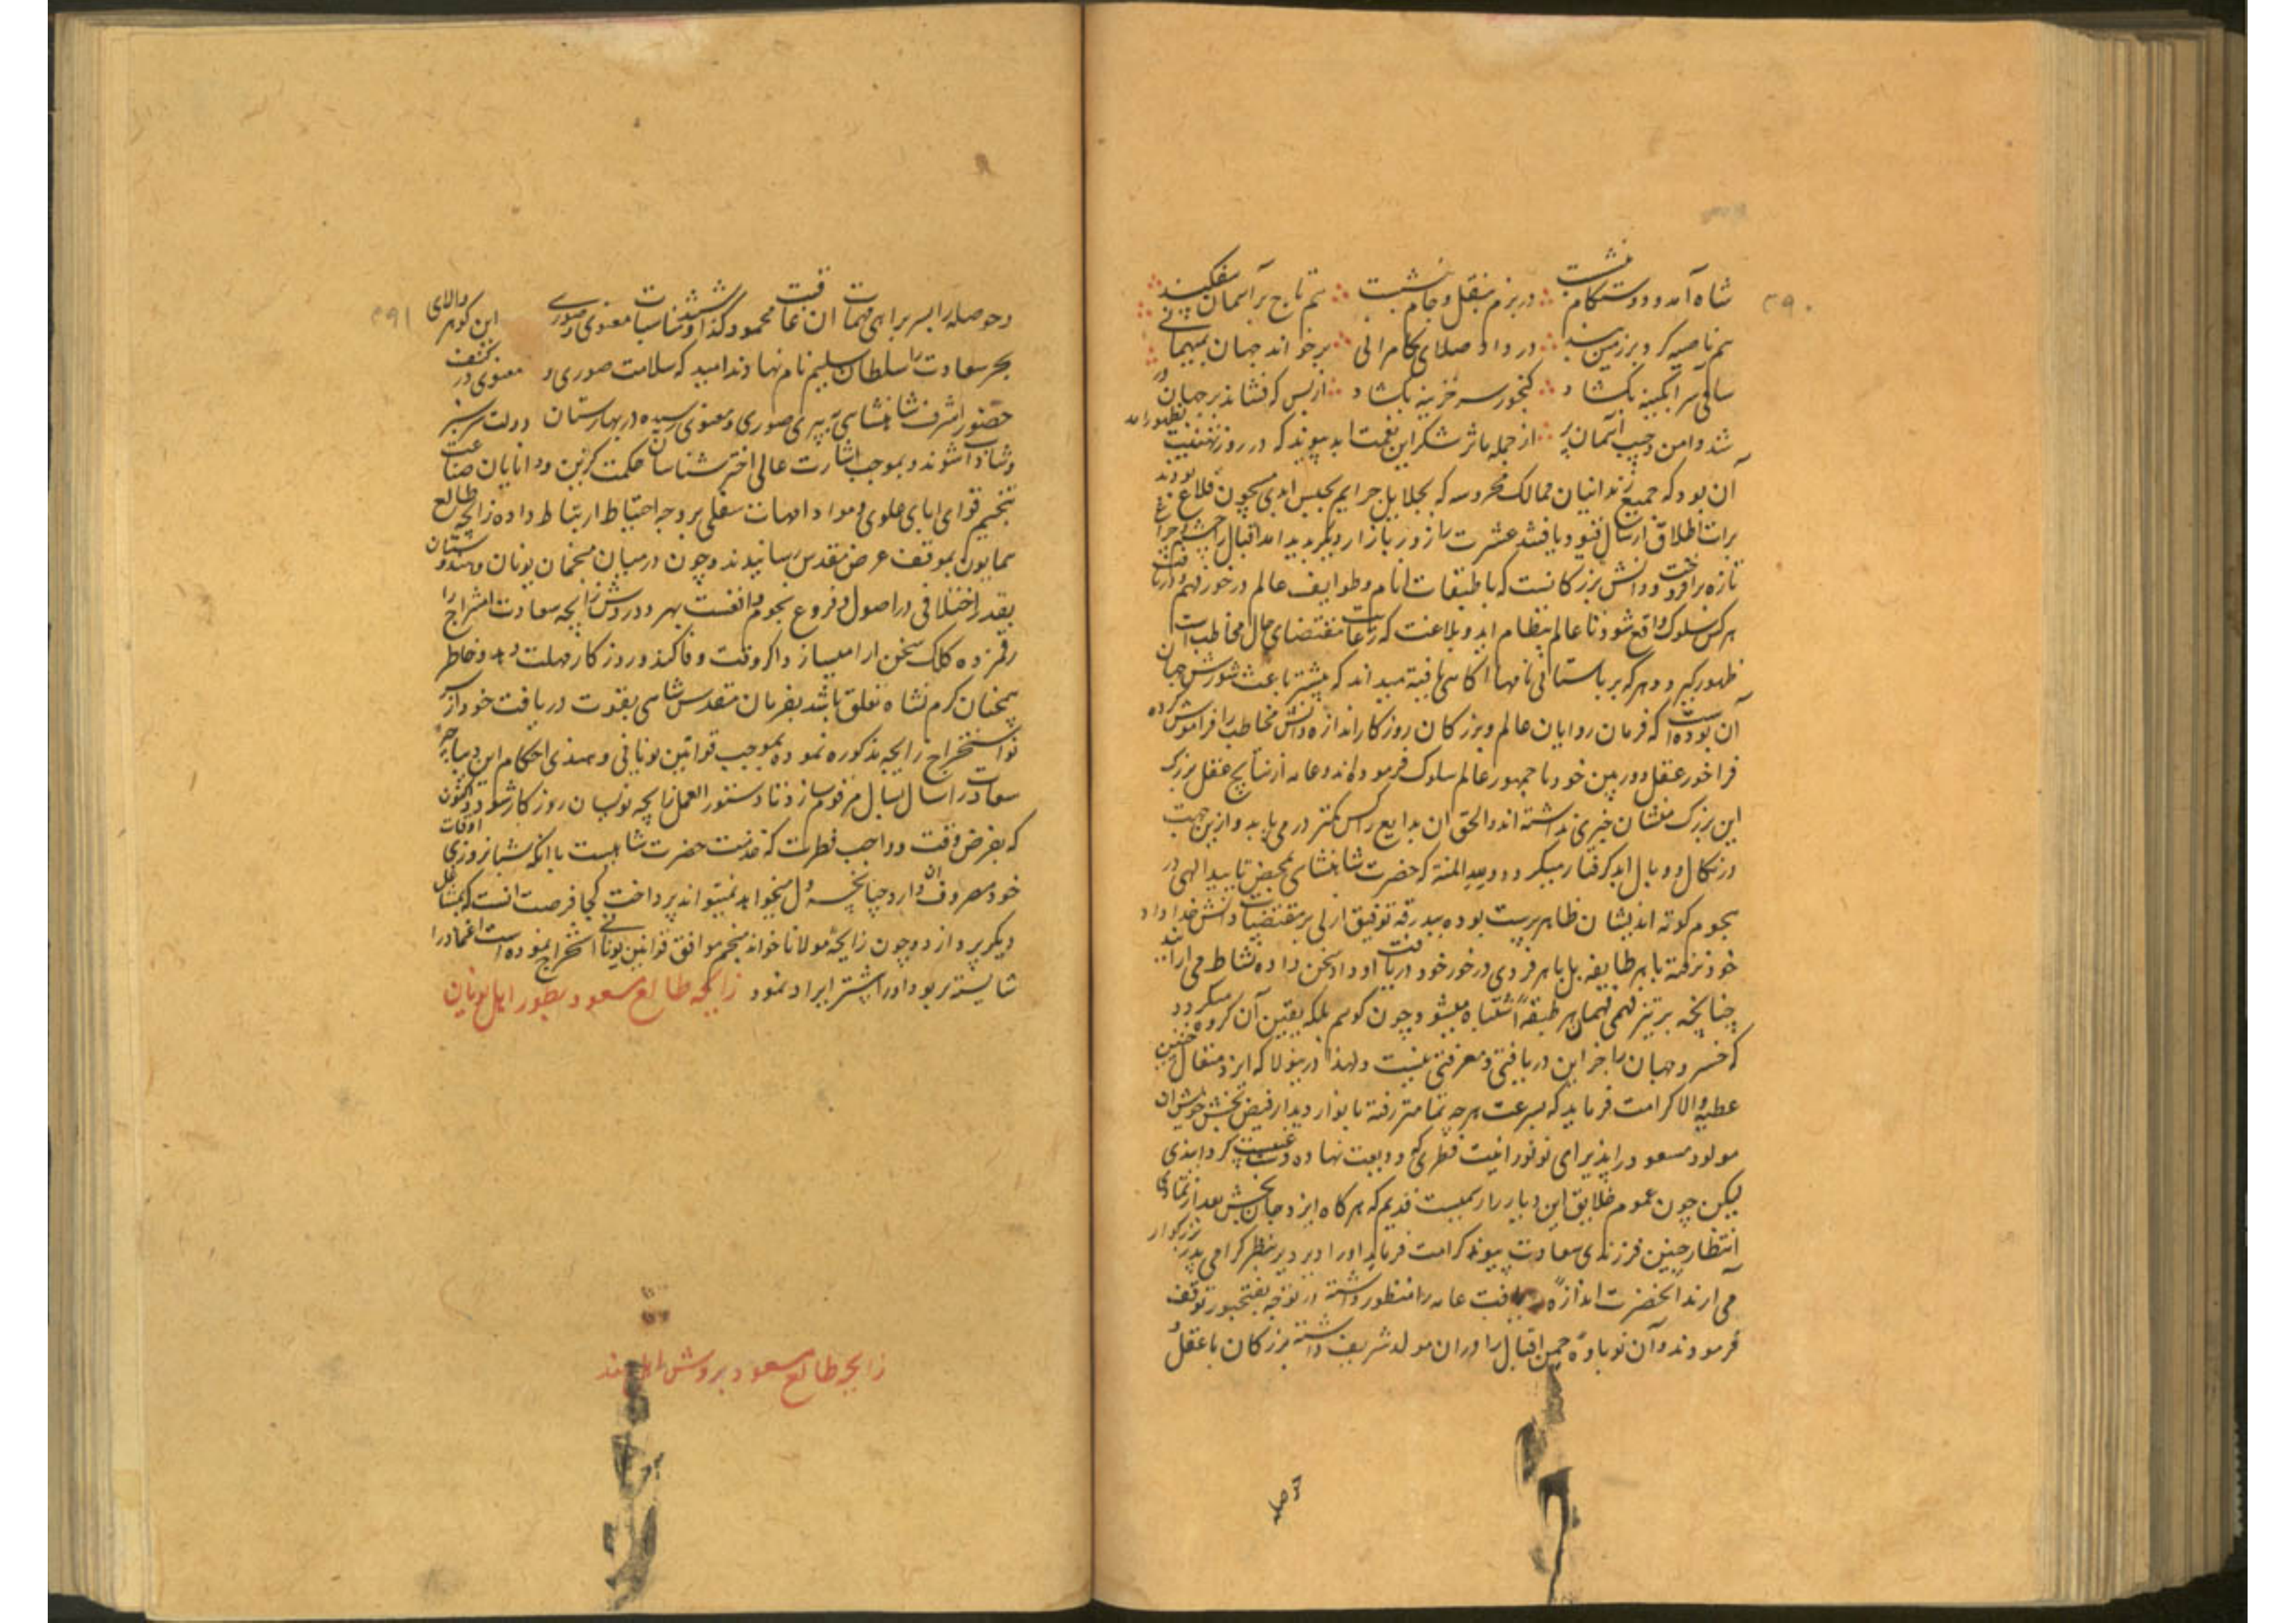 ۳۹۰
شاه آمد و دوستکام بنشست در بزم بنقل و جام بنشست هم تاج بر آسمان بیفکند
هم ناصیه کرد بر زمین بند در داد صلای کامرانی بر خواند جهان بمیهمانی
ساقی سر آبگینه بکشاد گنجور سر خزینه بکشاد از بس که فشاند بر جهان در
شد دامن و جیب آسمان پر از جمله مآثر شکر این نعمت ابد پیوند که در روز تهنیت بظهور آمد
آن بود که جمیع زندانیان ممالک محروسه که بجلایل جرایم بحبس ابدی مسجون قلاع بودند
برات اطلاق ارسال قیود یافتند عشرت را روز بازار دیگر پدید آمد اقبال را چشم چراغ
تازه برافروخت و دانش بزرگانست که با طبقات انام و طوایف عالم در خور فهم و دریافت
هر کس سلوک واقع شود تا عالم انتظام یابد و بلاغت که رعایت مقتضای حال مخاطب است
ظهور گیرد و هر که بر باستانی نامها آگاهی یافته میداند که بیشتر باعث شورش جهان
آن بوده است که فرمان روایان عالم و بزرگان روزگار اندازه دانش مخاطب را فراموش کرده
فراخور عقل دوربین خود با جمهور عالم سلوک فرموده اند و عامه از نتایج عقل بزرگ
این بزرگ منشان خبری نداشته اند و الحق آن بدایع را کس کمتر در می یابد و ازین جهت
در نکال و وبال ابد گرفتار میگردد و لله المنة که حضرت شاهنشاهی بمحض تایید الهی در
هجوم کوته اندیشان ظاهر پرست بوده ببدرقه توفیق ازلی بر مقتضیات دانش خداداد
خود نرفته با هر طایفه بل با هر فردی در خور خود دریافت او داد سخن داده نشاط می آرایند
چنانچه بر تیز فهمی فهمان هر طبقه اشتباه میشود چون گویم بلکه یقین آن گروه میگردد
که خسرو جهان را جز این دریافتی و معرفتی نیست و لهذا درینولا که ایزد متعال چنین
عطیه والا کرامت فرماید که بسرعت هر چه تمامتر رفته بانوار دیدار فیض بخش خویش آن
مولود مسعود را پذیرای نور نورانیت فطری که ودیعت نهاده دست غیبست گردانیدی
لیکن چون عموم خلایق این دیار را رسمیست قدیم که هرگاه ایزد جان بخش بعد از تمادی
انتظار چنین فرزندی سعادت پیوند کرامت فرماید او را دیر دیر بنظر گرامی پدر بزرگوار
می آرند آنحضرت اندازه دریافت عامه را منظور داشته از توجه بفتحپور توقف
فرمودند و آن نوباوه چمن اقبال را در آن مولد شریف داشته بزرگان با عقل
و حوصله
۳۹۱
و حوصله را بسربراهی مهمات آن عاقبت محمود گذاشتند و مناسبات معنوی و صوری این گوهر والای
بحر سعادت را سلطان سلیم نام نهادند امید که سلامت صوری و معنوی در کنف
حضور اشرف شاهنشاهی به پیری صوری و معنوی رسیده در بهارستان دولت سرسبز
و شاداب شوند و بموجب اشارت عالی اختر شناسان حکمت گزین و دانایان صناعت
تنجیم قوای آبای علوی و مواد امهات سفلی بر وجه احتیاط ارتباط داده زایچه طالع
همایون بموقف عرض مقدس رسانیدند و چون در میان منجمان یونان و هندوستان
بقدر اختلافی در اصول و فروع نجوم واقعست بهر دو روش زایچه سعادت امتزاج را
رقمزده کلک سخن آرا میسازد اگر وقت وفا کند و روزگار مهلت دهد و خاطر
همچنان گرم نشاه تعلق باشد بفرمان مقدس شاهی بقوت دریافت خود از سر
نو استخراج زایچه مذکوره نموده بموجب قوانین یونانی و هندی احکام این دیباچه
سعادت را سال بسال مرقوم سازد تا دستور العمل زایچه نویسان روزگار شود و اکنون
که بفرض وقت و واجب فطرت که خدمت حضرت شاهیست با آنکه شبانروزی اوقات
خود مصروف آن دارد چنانچه دل میخواهد نمیتواند پرداخت کجا فرصت آنست که بمشاغل
دیگر پردازد و چون زایچه مولانا خواند منجم موافق قوانین یونانی استخراج نموده است اعتماد را
شایسته تر بود اورا پیشتر ایراد نمود زایچه طالع مسعود بطور اهل یونان
زایچه طالع مسعود بروش اهل هند